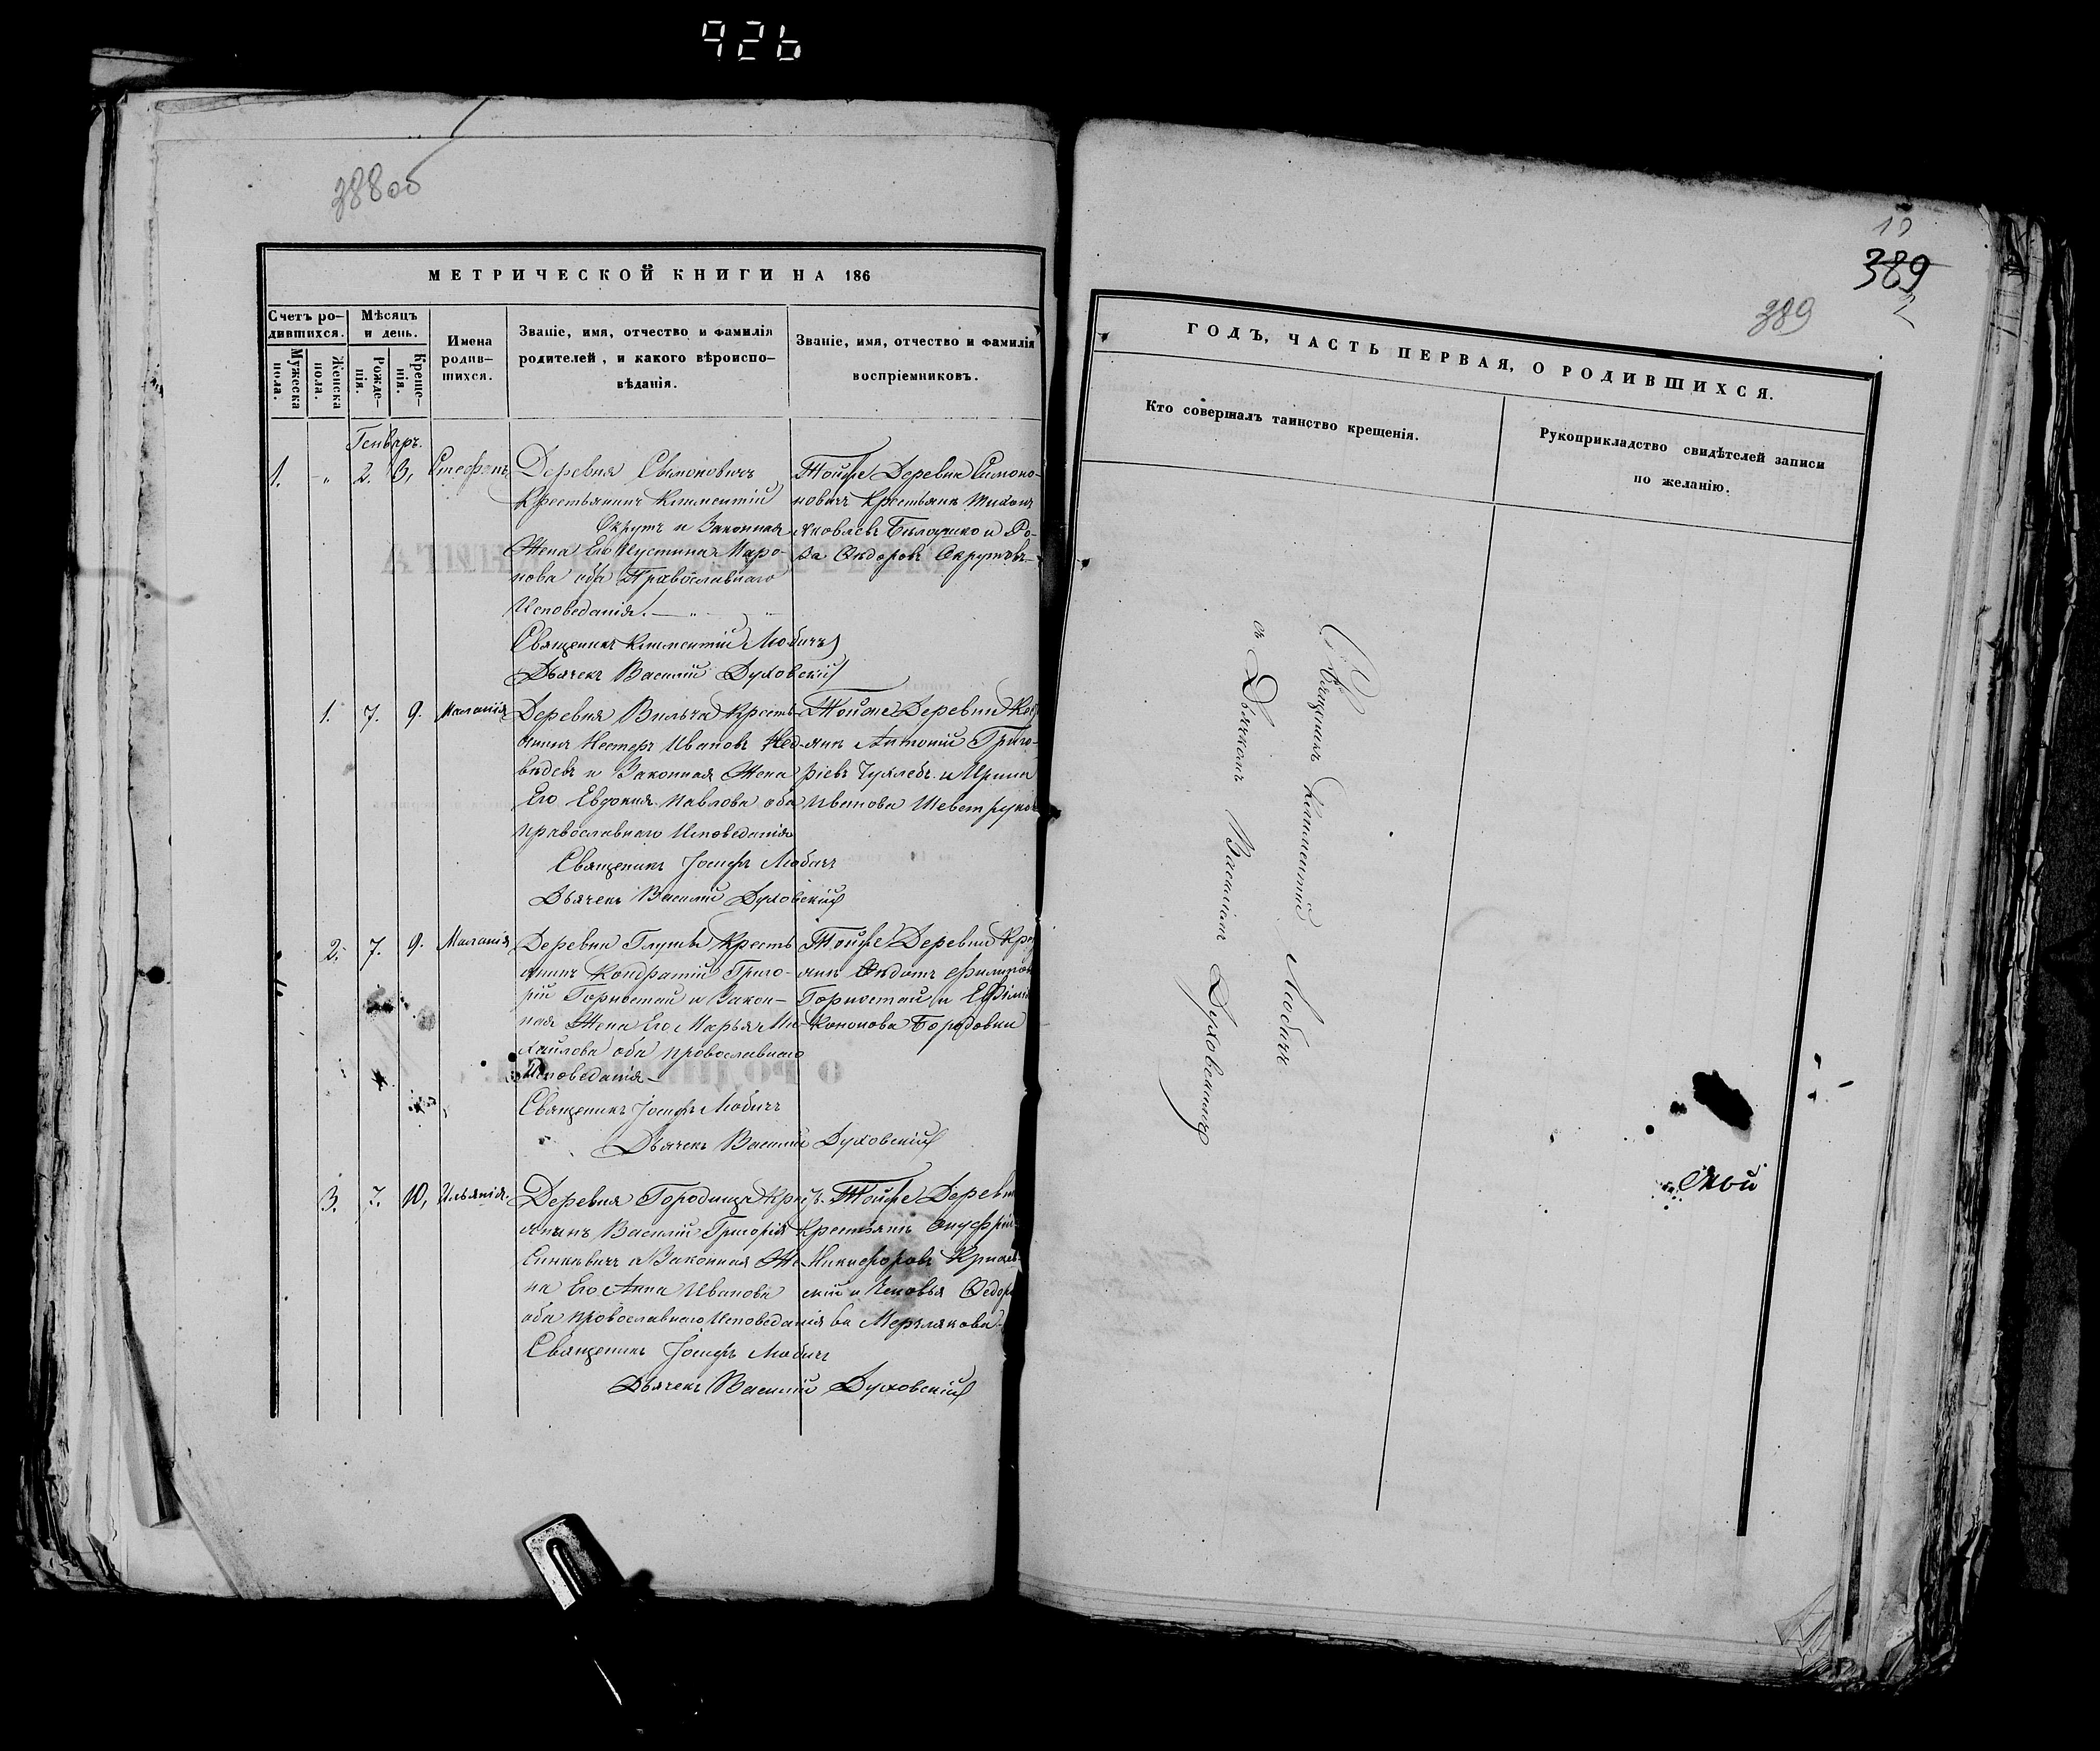 926
388об
МЕТРИЧЕСКОЙ КНИГИ НА 186
Счетъ ро-
дившихся.
Мужеска
пола.
Женска
пола.
Мѣсяцъ
и день.
Рожде-
нія.
Креще-
нія.
Имена
родив-
шихся.
Званіе, имя, отчество и фамилія
родителей, и какого вѣроиспо-
вѣданія.
Званіе, имя, отчество и фамилія
воспріемниковъ.
Генваръ.
1. 2. 3, Стефанъ
Деревня Симоновичъ
Крестьянинъ Климентій
Окрутъ и Законная
Жена Его Иустина Маро-
нова оба Православнаго
Исповеданія.
Священикъ Климентій Любичъ
Дьячекъ Василій Духовскій
Тойже Деревни Симоно-
новичъ Крестьянъ Тихонъ
Яковлевъ и Ро-
за Ѳедорова
1. 7. 9. Маланія
Деревня Вильча Кресть-
янинъ Нестеръ Ивановъ Нед-
ведевъ и Законная Жена
Его Евдокия Павлова оба
православнаго Исповеданія
Священикъ Іосифъ Любичъ
Дьячекъ Василій Духовскій
Тойже Деревни
янъ Антоній Григо-
ріевъ и Ирина
Иванова
2. 7. 9. Маланія
Деревни Глушь Кресть
янинъ Кондратій Григо-
рій Горностай и Закон-
ная Жена Его Марья Ми-
хайлова оба провославнаго
Исповеданія
Священикъ Іосифъ Любичъ
Дьячекъ Василій Духовскій
Тойже Деревни
янъ Ѳедотъ Филипов
Горностай и
Кононова
3. 7. 10, Ульянія.
Деревня Городища Крес
янинъ Василій Григорія
Синкевичъ и Законная Же
на Его Анна Иванова
оба провославнаго Исповеданія
Священикъ Іосифъ Любичъ
Дьячекъ Василій Духовскій
Тойже Деревни
Крестьянъ Онуфрій
Никифоровъ
скій и Ѳедоро
ва Мерзлякова
10
389
389
ГОДЪ, ЧАСТЬ ПЕРВАЯ, О РОДИВШИХСЯ.
Кто совершалъ таинство крещенія.
Рукоприкладство свидѣтелей записи
по желанію.
Священикъ Климентій Любичъ
съ Дьячкомъ Василіемъ Духовскимъ